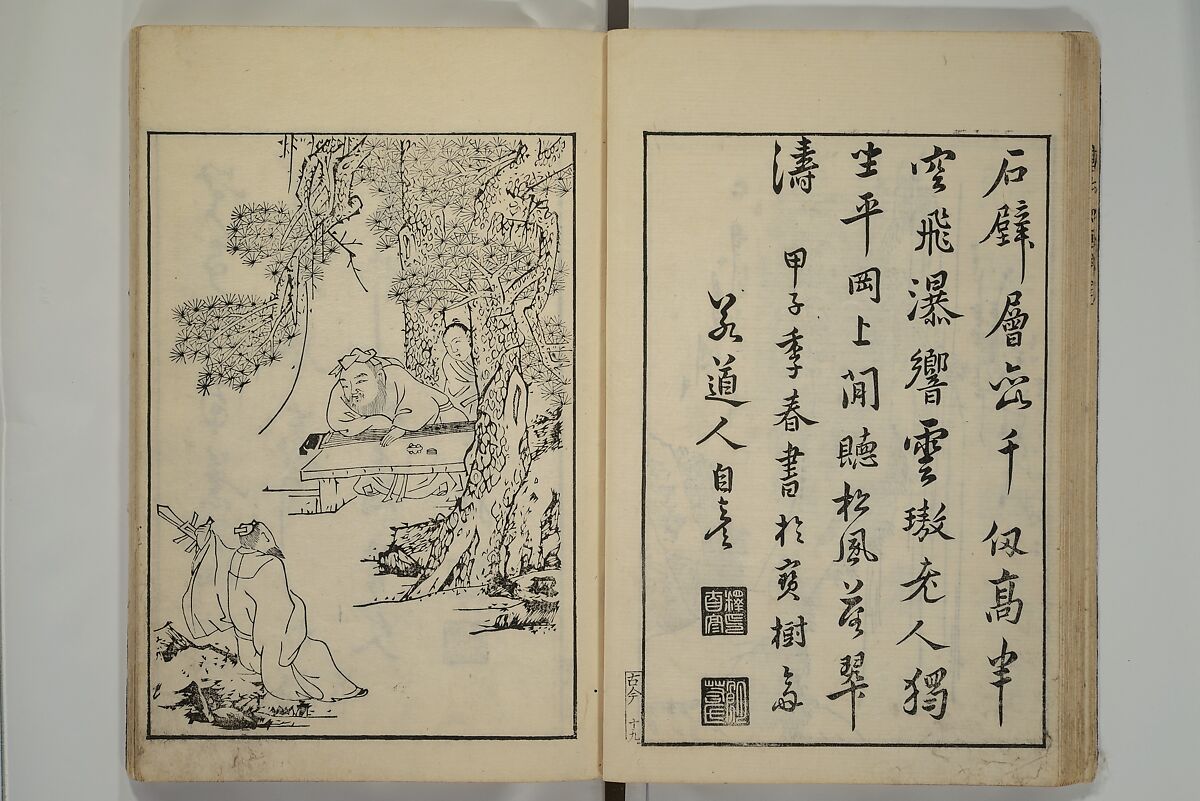 石壁層峦千仭高半
空飛瀑響雲璈老人獨
坐平岡上閒聽松風落翠
濤
甲子季春書於寶樹齋
道人自彥
古今 十九